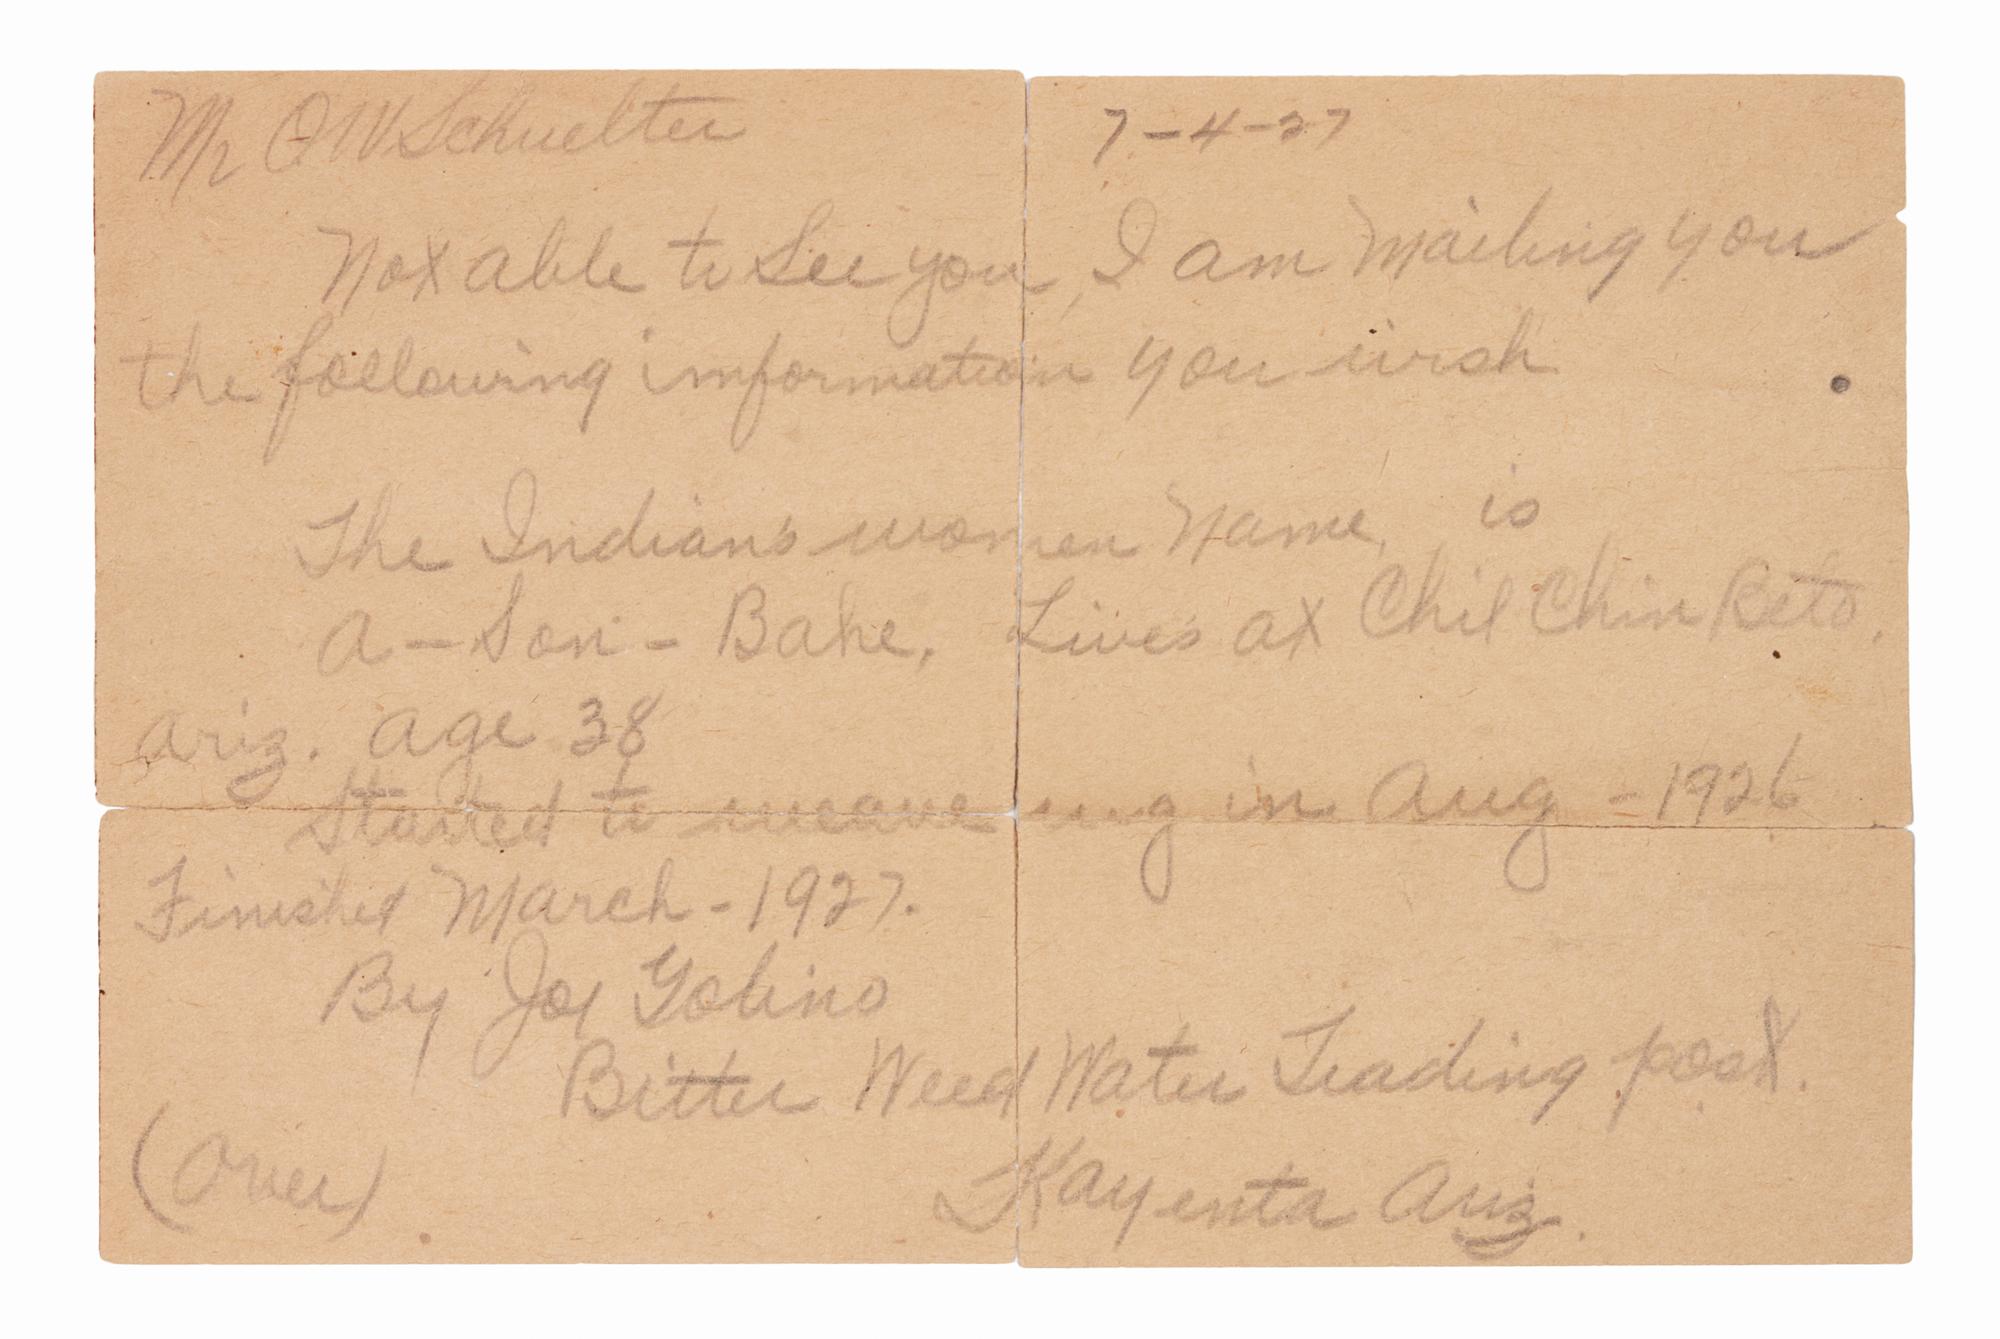 Mr O W Schuelter 7-4-27
Not able to see you, I am mailing you
the following information you wish
The Indians women name, is
A-Son-Bahe. Lives at Chil Chin Beto.
Ariz. age 38
Started to weave rug in Aug - 1926
Finished March - 1927.
By Joe
Bitter Weed Water Trading post.
(Over) Kayenta Ariz.